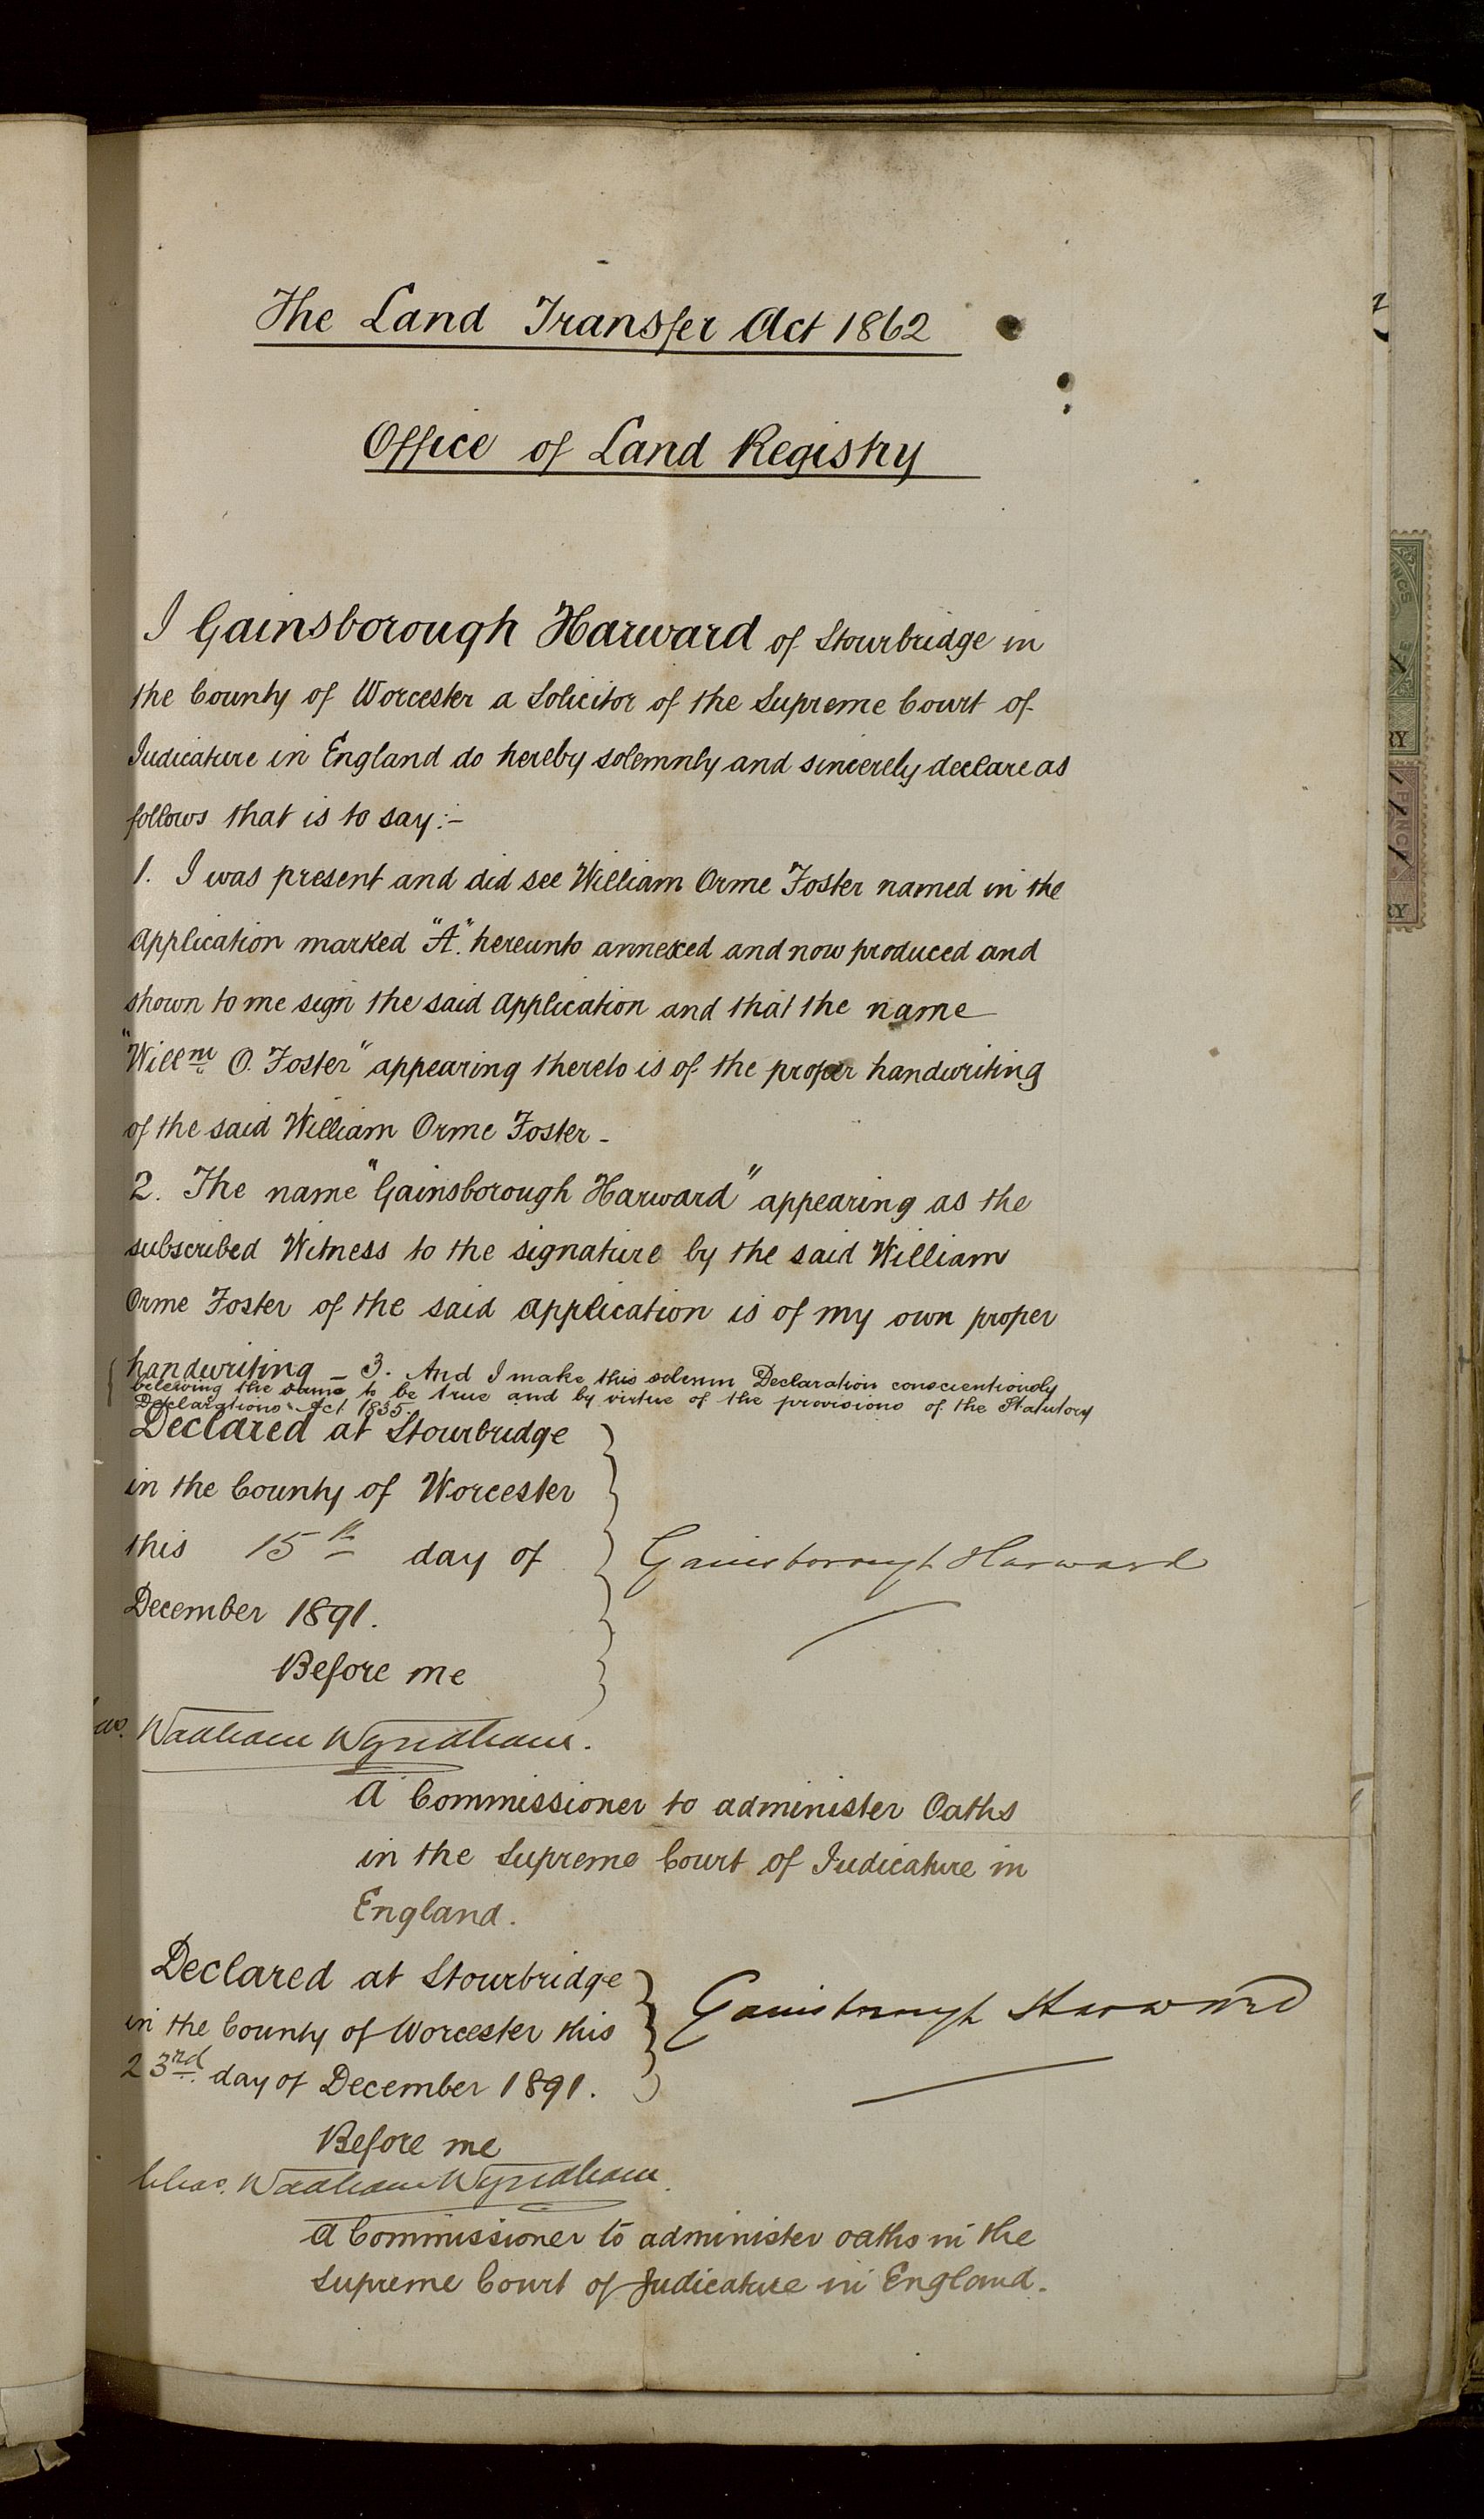 The Land Transfer Act 1862
Office of Land Registry
I Gainsborough Harward of Stourbridge in
the County of Worcester a Solicitor of the Supreme Court of
Judicature in England do hereby solemnly and sincerely declare as
follows that is to say:-
1. I was present and did see William Orme Foster named in the
Application marked "A." hereunto annexed and now produced and
shown to me sign the said Application and that the name
"Willm O. Foster" appearing thereto is of the proper handwriting
of the said William Orme Foster -
2. The name "Gainsborough Harward" appearing as the
subscribed Witness to the signature by the said William
Orme Foster of the said Application is of my own proper
handwriting - 3. And I make this solemn Declaration conscientiously
beleiving the same to be true and by virtue of the provisions of the Statutory
Declarations Act 1835.
Declared at Stourbridge
in the County of Worcester
this 15th day of
December 1891.
Gainsborough Harward
Before me
Wadham Wyndham.
A Commissioner to administer Oaths
in the Supreme Court of Judicature in
England.
Declared at Stourbridge
in the County of Worcester this
23rd day of December 1891.
Gainsborough Harward
Before me
Chas. Wadham Wyndham.
A Commissioner to administer oaths in the
Supreme Court of Judicature in England.